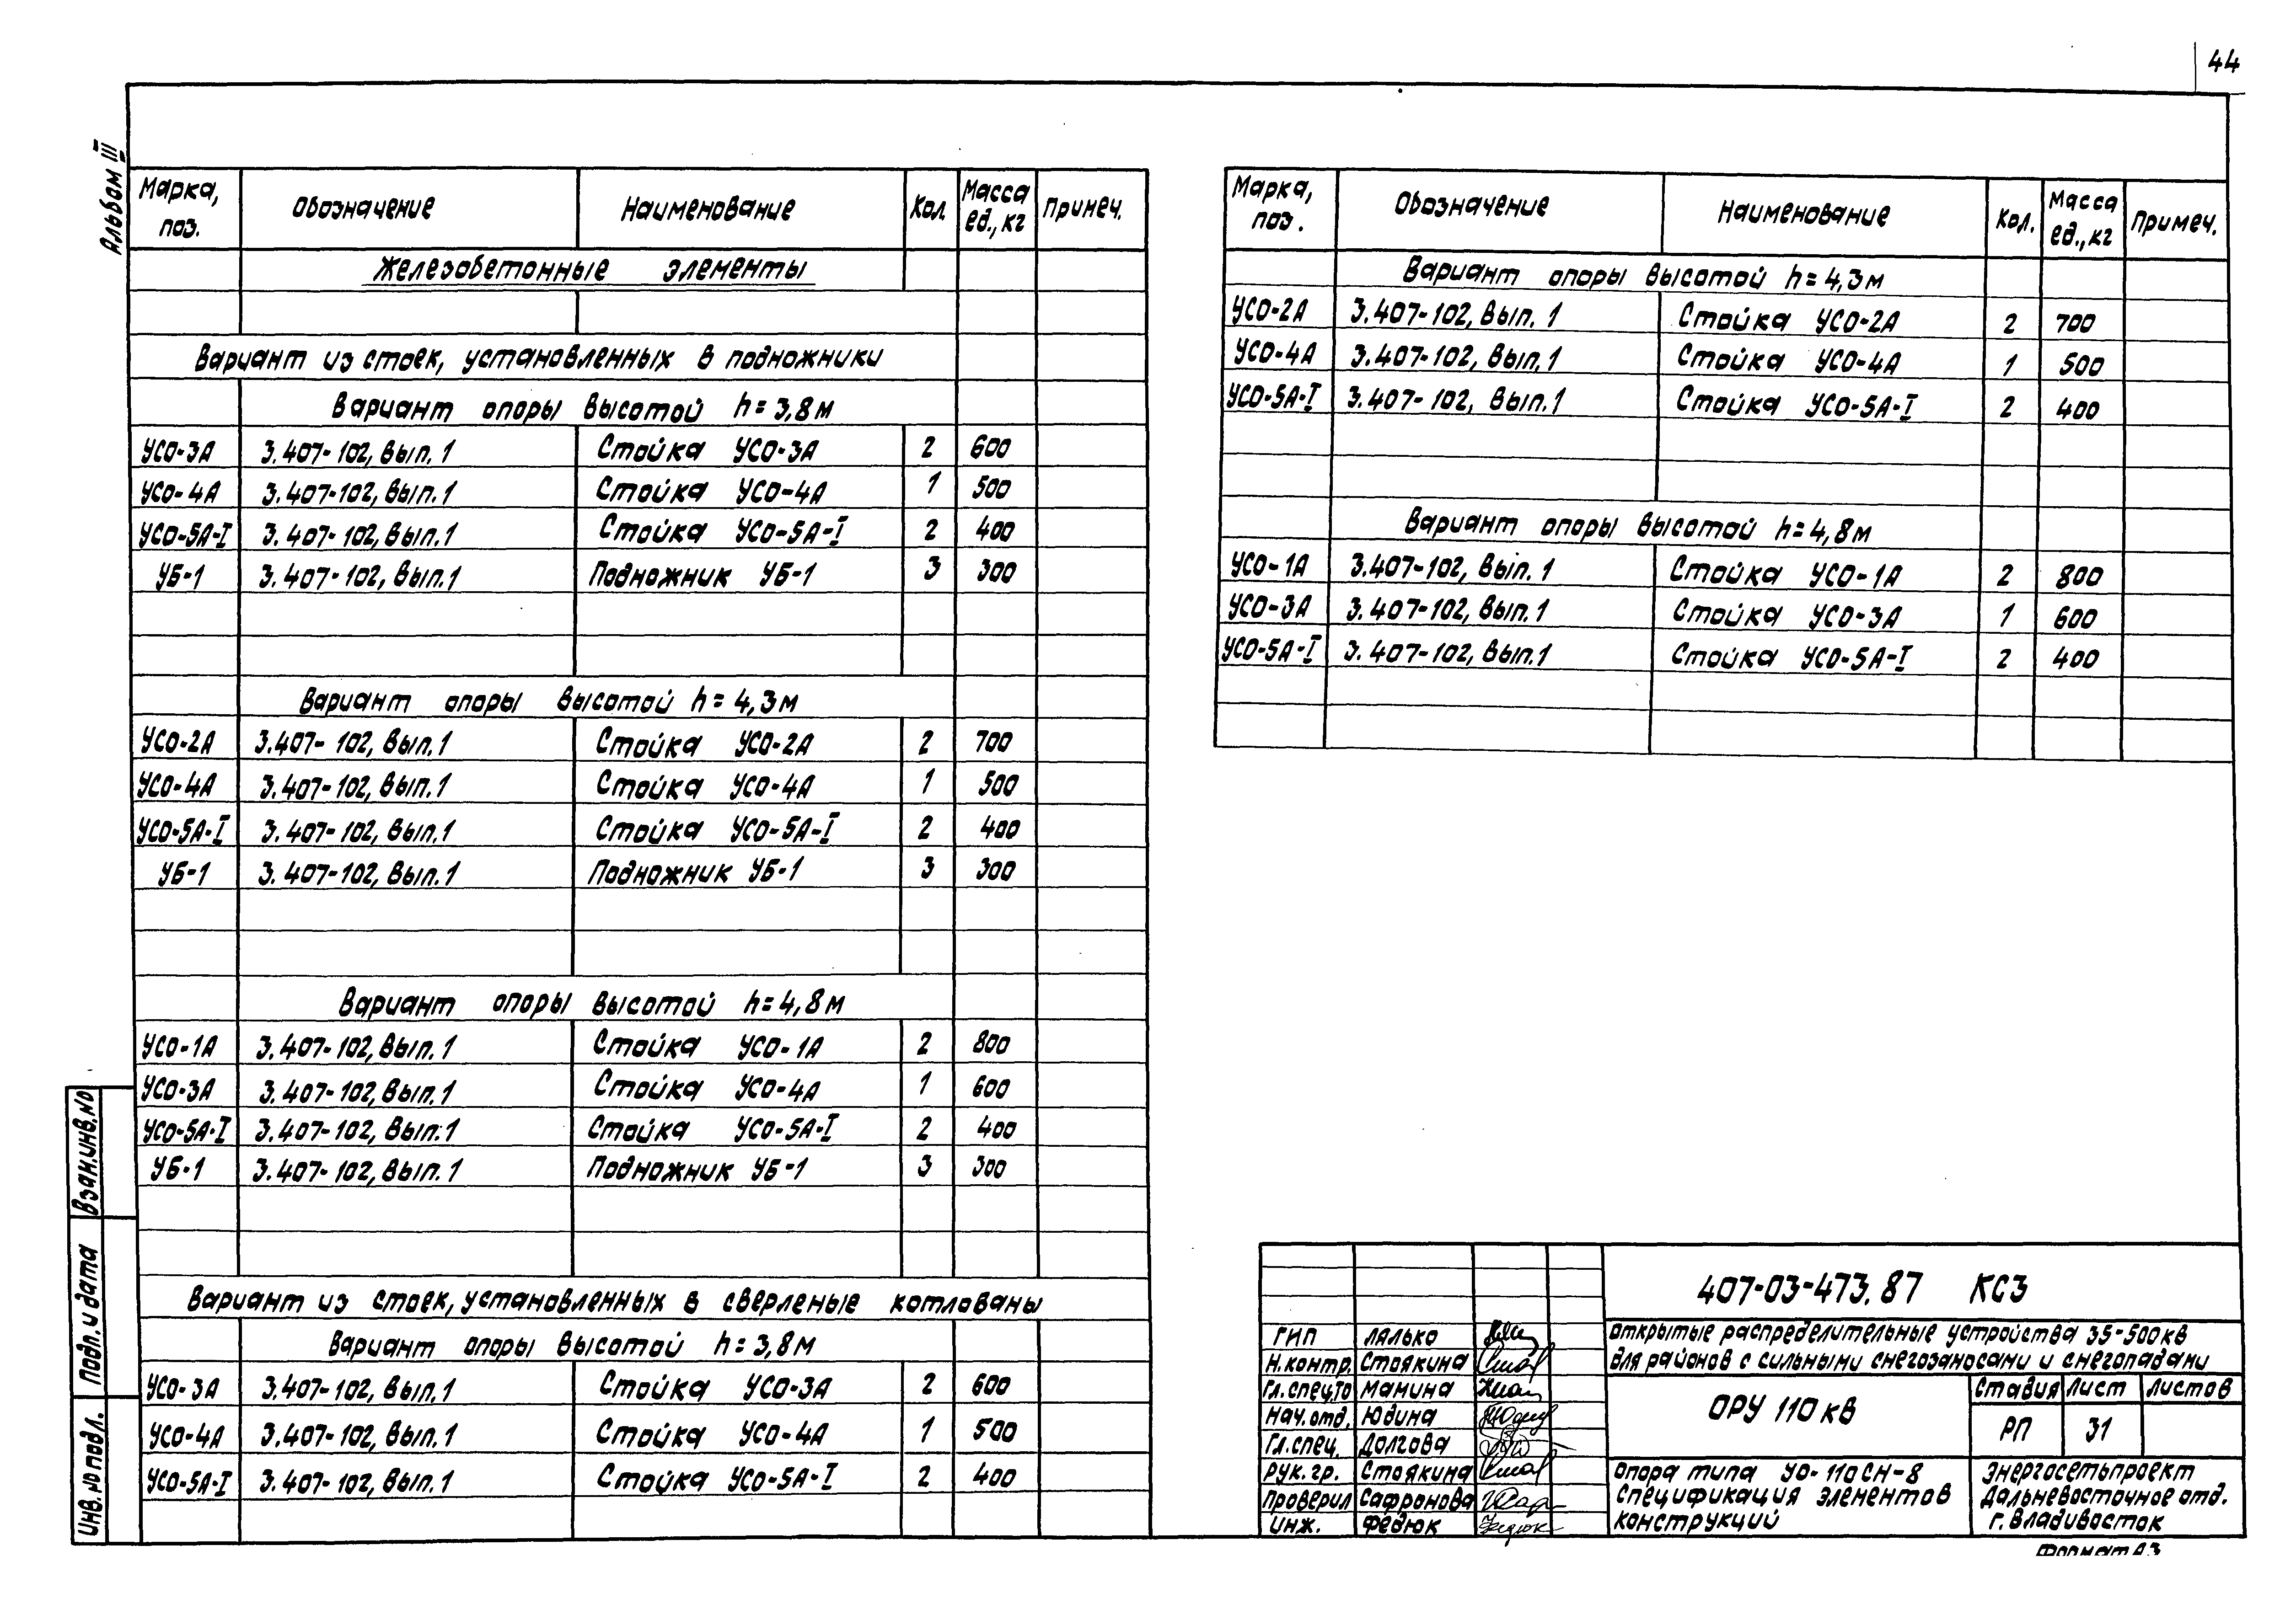 44
Альбом III
Марка, поз. Обозначение Наименование Кол. Масса ед., кг Примеч.
Железобетонные элементы
Вариант из стоек, установленных в подножники
Вариант опоры высотой h = 3,8 м
УСО-3А 3.407-102, Вып. 1 Стойка УСО-3А 2 600
УСО-4А 3.407-102, Вып. 1 Стойка УСО-4А 1 500
УСО-5А-I 3.407-102, Вып. 1 Стойка УСО-5А-I 2 400
УБ-1 3.407-102, Вып. 1 Подножник УБ-1 3 300
Вариант опоры высотой h = 4,3 м
УСО-2А 3.407-102, Вып. 1 Стойка УСО-2А 2 700
УСО-4А 3.407-102, Вып. 1 Стойка УСО-4А 1 500
УСО-5А-I 3.407-102, Вып. 1 Стойка УСО-5А-I 2 400
УБ-1 3.407-102, Вып. 1 Подножник УБ-1 3 300
Вариант опоры высотой h = 4,8 м
УСО-1А 3.407-102, Вып. 1 Стойка УСО-1А 2 800
УСО-3А 3.407-102, Вып. 1 Стойка УСО-4А 1 600
УСО-5А-I 3.407-102, Вып. 1 Стойка УСО-5А-I 2 400
УБ-1 3.407-102, Вып. 1 Подножник УБ-1 3 300
Вариант из стоек, установленных в сверленые котлованы
Вариант опоры высотой h = 3,8 м
УСО-3А 3.407-102, Вып. 1 Стойка УСО-3А 2 600
УСО-4А 3.407-102, Вып. 1 Стойка УСО-4А 1 500
УСО-5А-I 3.407-102, Вып. 1 Стойка УСО-5А-I 2 400
Марка, поз. Обозначение Наименование Кол. Масса ед., кг Примеч.
Вариант опоры высотой h = 4,3 м
УСО-2А 3.407-102, Вып. 1 Стойка УСО-2А 2 700
УСО-4А 3.407-102, Вып. 1 Стойка УСО-4А 1 500
УСО-5А-I 3.407-102, Вып. 1 Стойка УСО-5А-I 2 400
Вариант опоры высотой h = 4,8 м
УСО-1А 3.407-102, Вып. 1 Стойка УСО-1А 2 800
УСО-3А 3.407-102, Вып. 1 Стойка УСО-3А 1 600
УСО-5А-I 3.407-102, Вып. 1 Стойка УСО-5А-I 2 400
Взам.инв.№
Подп. и дата
Инв. № подл.
407-03-473.87 КС3
Открытые распределительные устройства 35-500кв
для районов с сильными снегозаносами и снегопадами
ГИП Лялько
Н.контр. Стоякина
Гл.спец.ТО Мамина
Нач.отд. Юдина
Гл.спец. Долгова
Рук.гр. Стоякина
Проверил Сафронова
Инж. Федюк
ОРУ 110 кв
Стадия Лист Листов
РП 31
Опора типа УО-110СН-8
Спецификация элементов
конструкций
Энергосетьпроект
Дальневосточное отд.
г. Владивосток
Формат А3